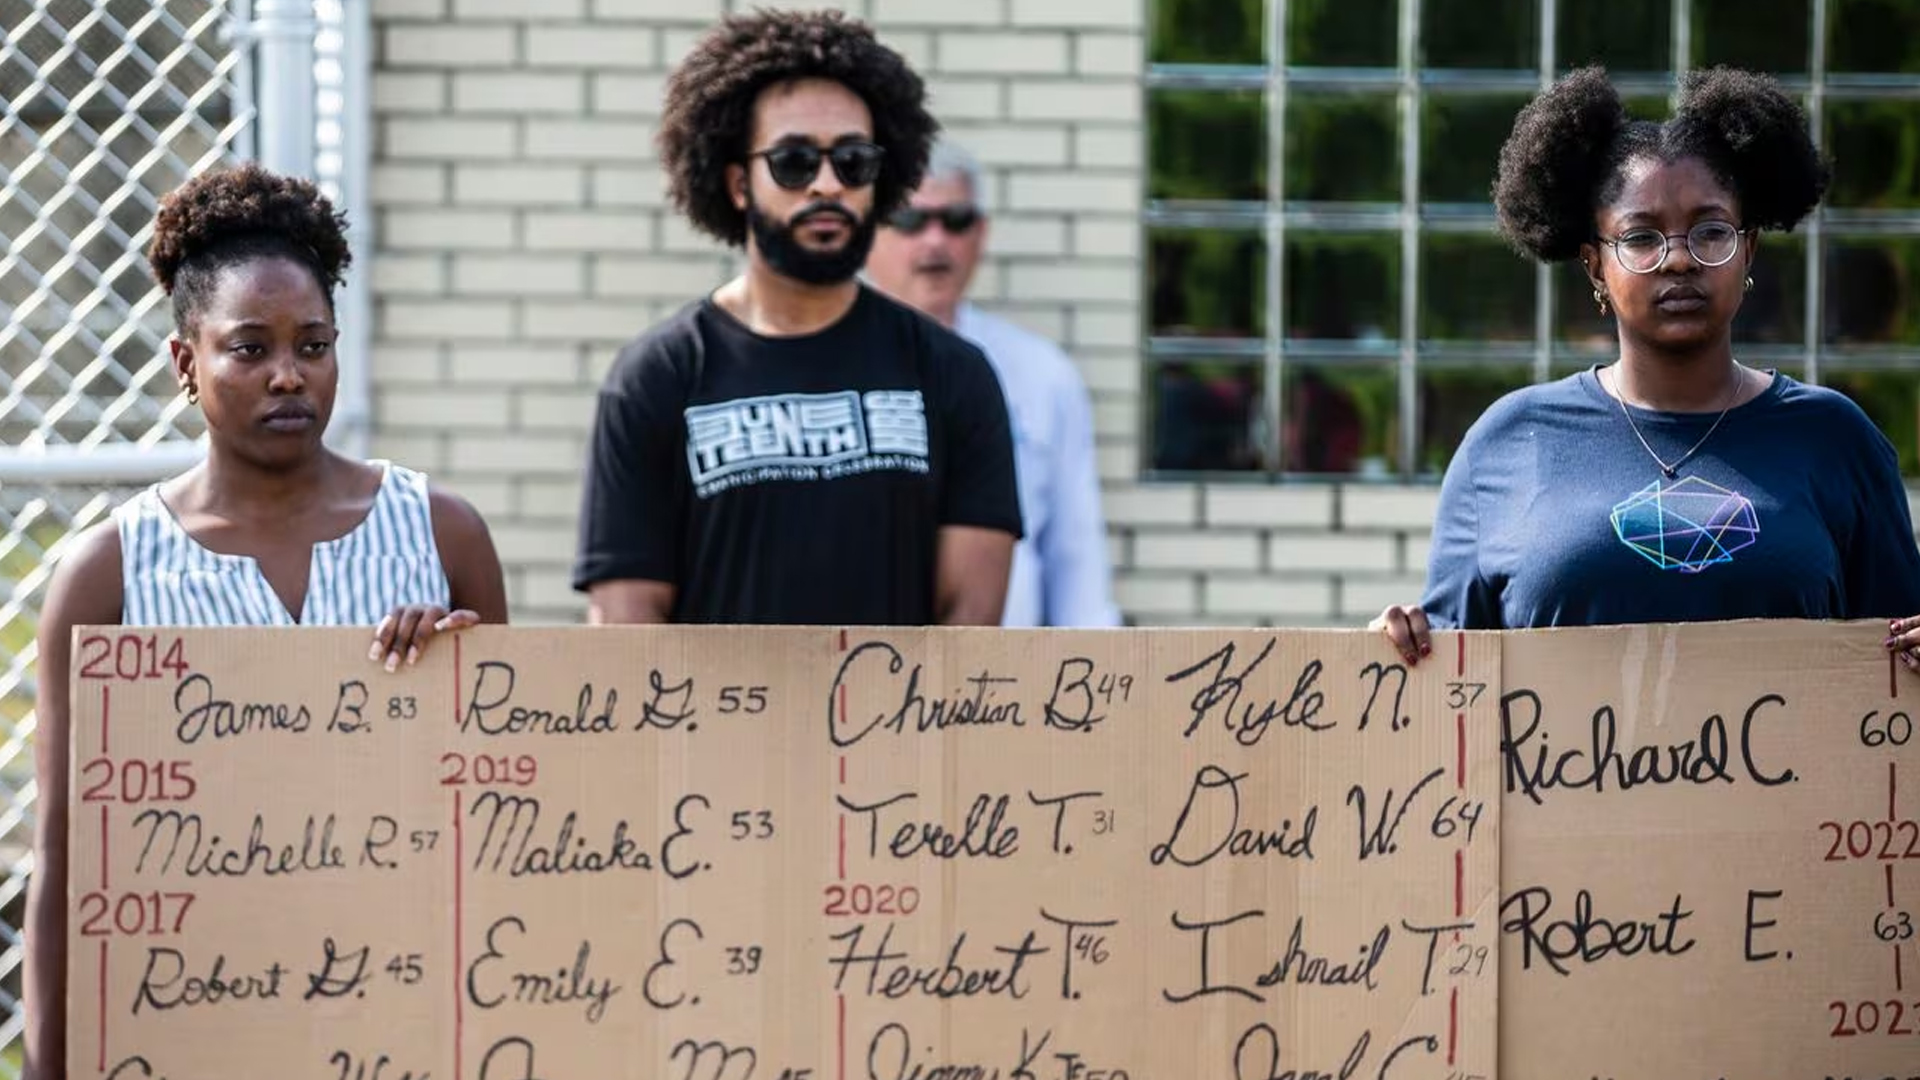 JUNE
TEENTH
EMANCIPATION CELEBRATION
2014
James B. 83
2015
Michelle R. 57
2017
Robert G. 45
Ronald G. 55
2019
Maliaka E. 53
Emily E. 39
M.
Christian B. 49
Terelle T. 31
2020
Herbert T. 46
Jimmy K
Kyle N. 37
David W. 64
Ishmail T. 29
Richard C. 60
2022
Robert E. 63
202